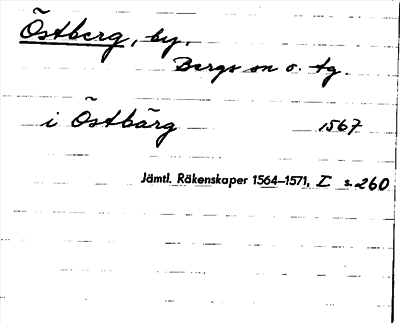 Östberg, by.
Bergs sn o. tg.
i Östbärg 1567
Jämtl. Räkenskaper 1564–1571, I s. 260